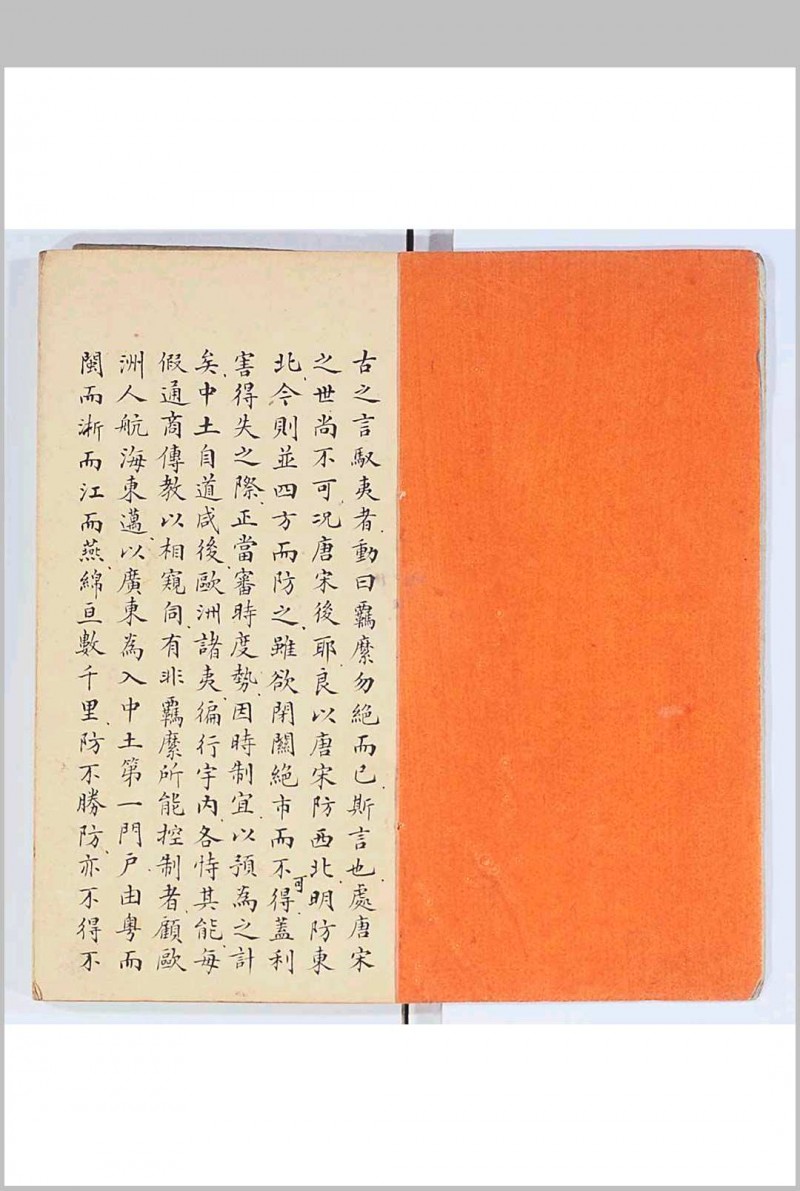 古之言馭夷者動曰羈縻勿絕而已斯言也處唐宋
之世尚不可况唐宋後耶良以唐宋防西北明防東
北今則並四方而防之雖欲閉關絕市而不可得蓋利
害得失之際正當審時度勢因時制宜以預為之計
矣中土自道咸後歐洲諸夷徧行宇內各恃其能每
假通商傳教以相窺伺有非羈縻所能控制者顧歐
洲人航海東邁以廣東為入中土第一門戶由粵而
閩而淅而江而燕綿亘數千里防不勝防亦不得不